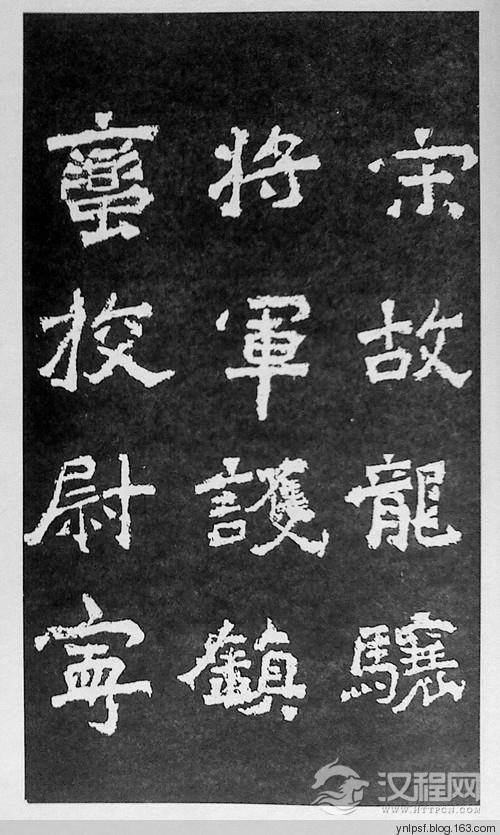 宋故龍驤
將軍護鎮
蠻挍尉寧
汉程网
WWW.HTTPCN.COM
ynlpsf.blog.163.com